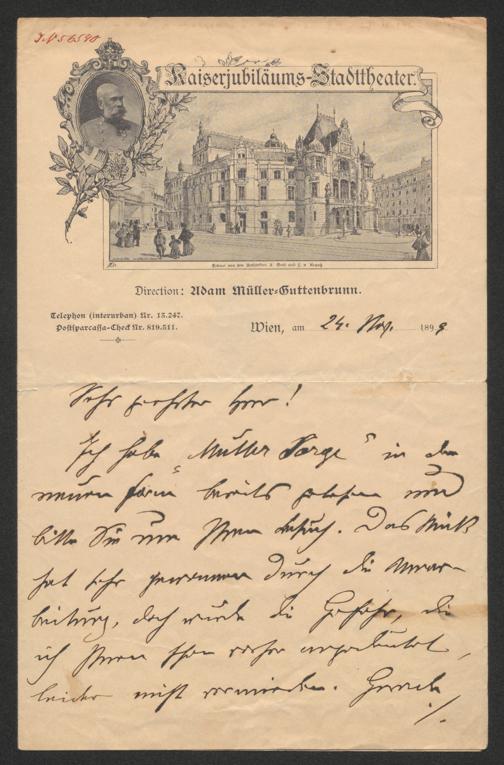 J.N 56590
Kaiserjubiläums-Stadttheater.
Direction: Adam Müller-Guttenbrunn.
Telephon (interurban) Nr. 15.247.
Postsparcassa-Check Nr. 819.511.
Wien, am 24. Nov. 1899
Sehr geehrter Herr!
Ich habe „Mutter Sorge" in der
neuen Form bereits gelesen und
bitte Sie um Ihren Besuch. Das Stück
hat sehr gewonnen durch die Umar-
beitung, doch wurde die Gefahr, die
ich Ihnen schon vorher angedeutet,
leider nicht vermieden. Gerade
./.